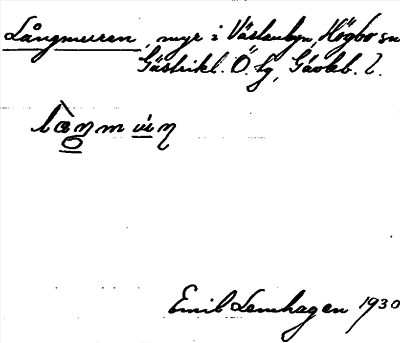 Långmuren, myr i Västanbyn, Högbo sn
Gästrikl. Ö. tg, Gävleb. l.
Emil Lenhagen 1930